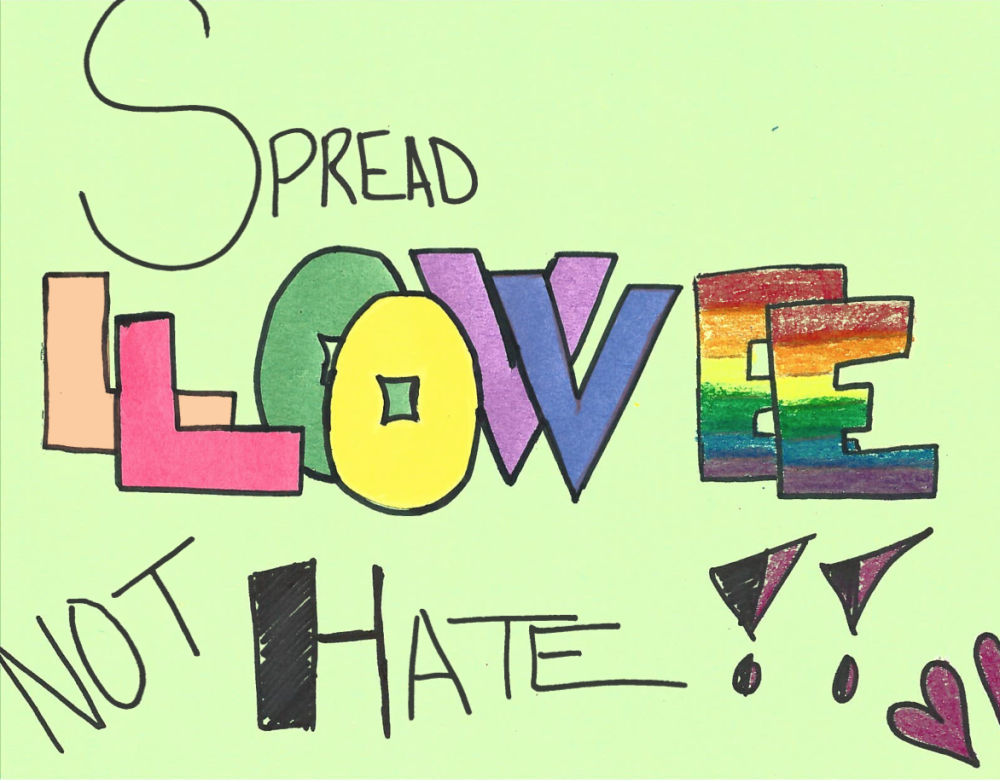 SPREAD
LOVE
NOT HATE!!